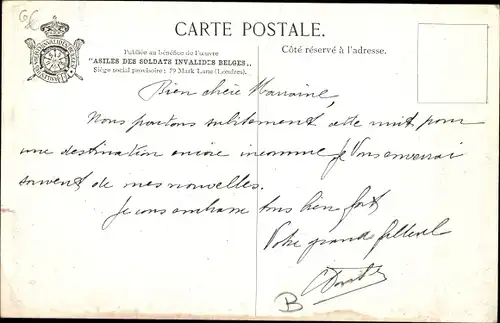 CARTE POSTALE.
Publiée au bénéfice de l'œuvre
"ASILES DES SOLDATS INVALIDES BELGES"
Siège social provisoire: 59 Mark Lane (Londres).
Côté réservé à l'adresse.
Bien chère Marraine,
Nous partons subitement cette nuit, pour
une destination encore inconnue Je Vous enverrai
souvent de mes nouvelles.
Je vous embrasse tous bien fort
Votre grande filleul
B